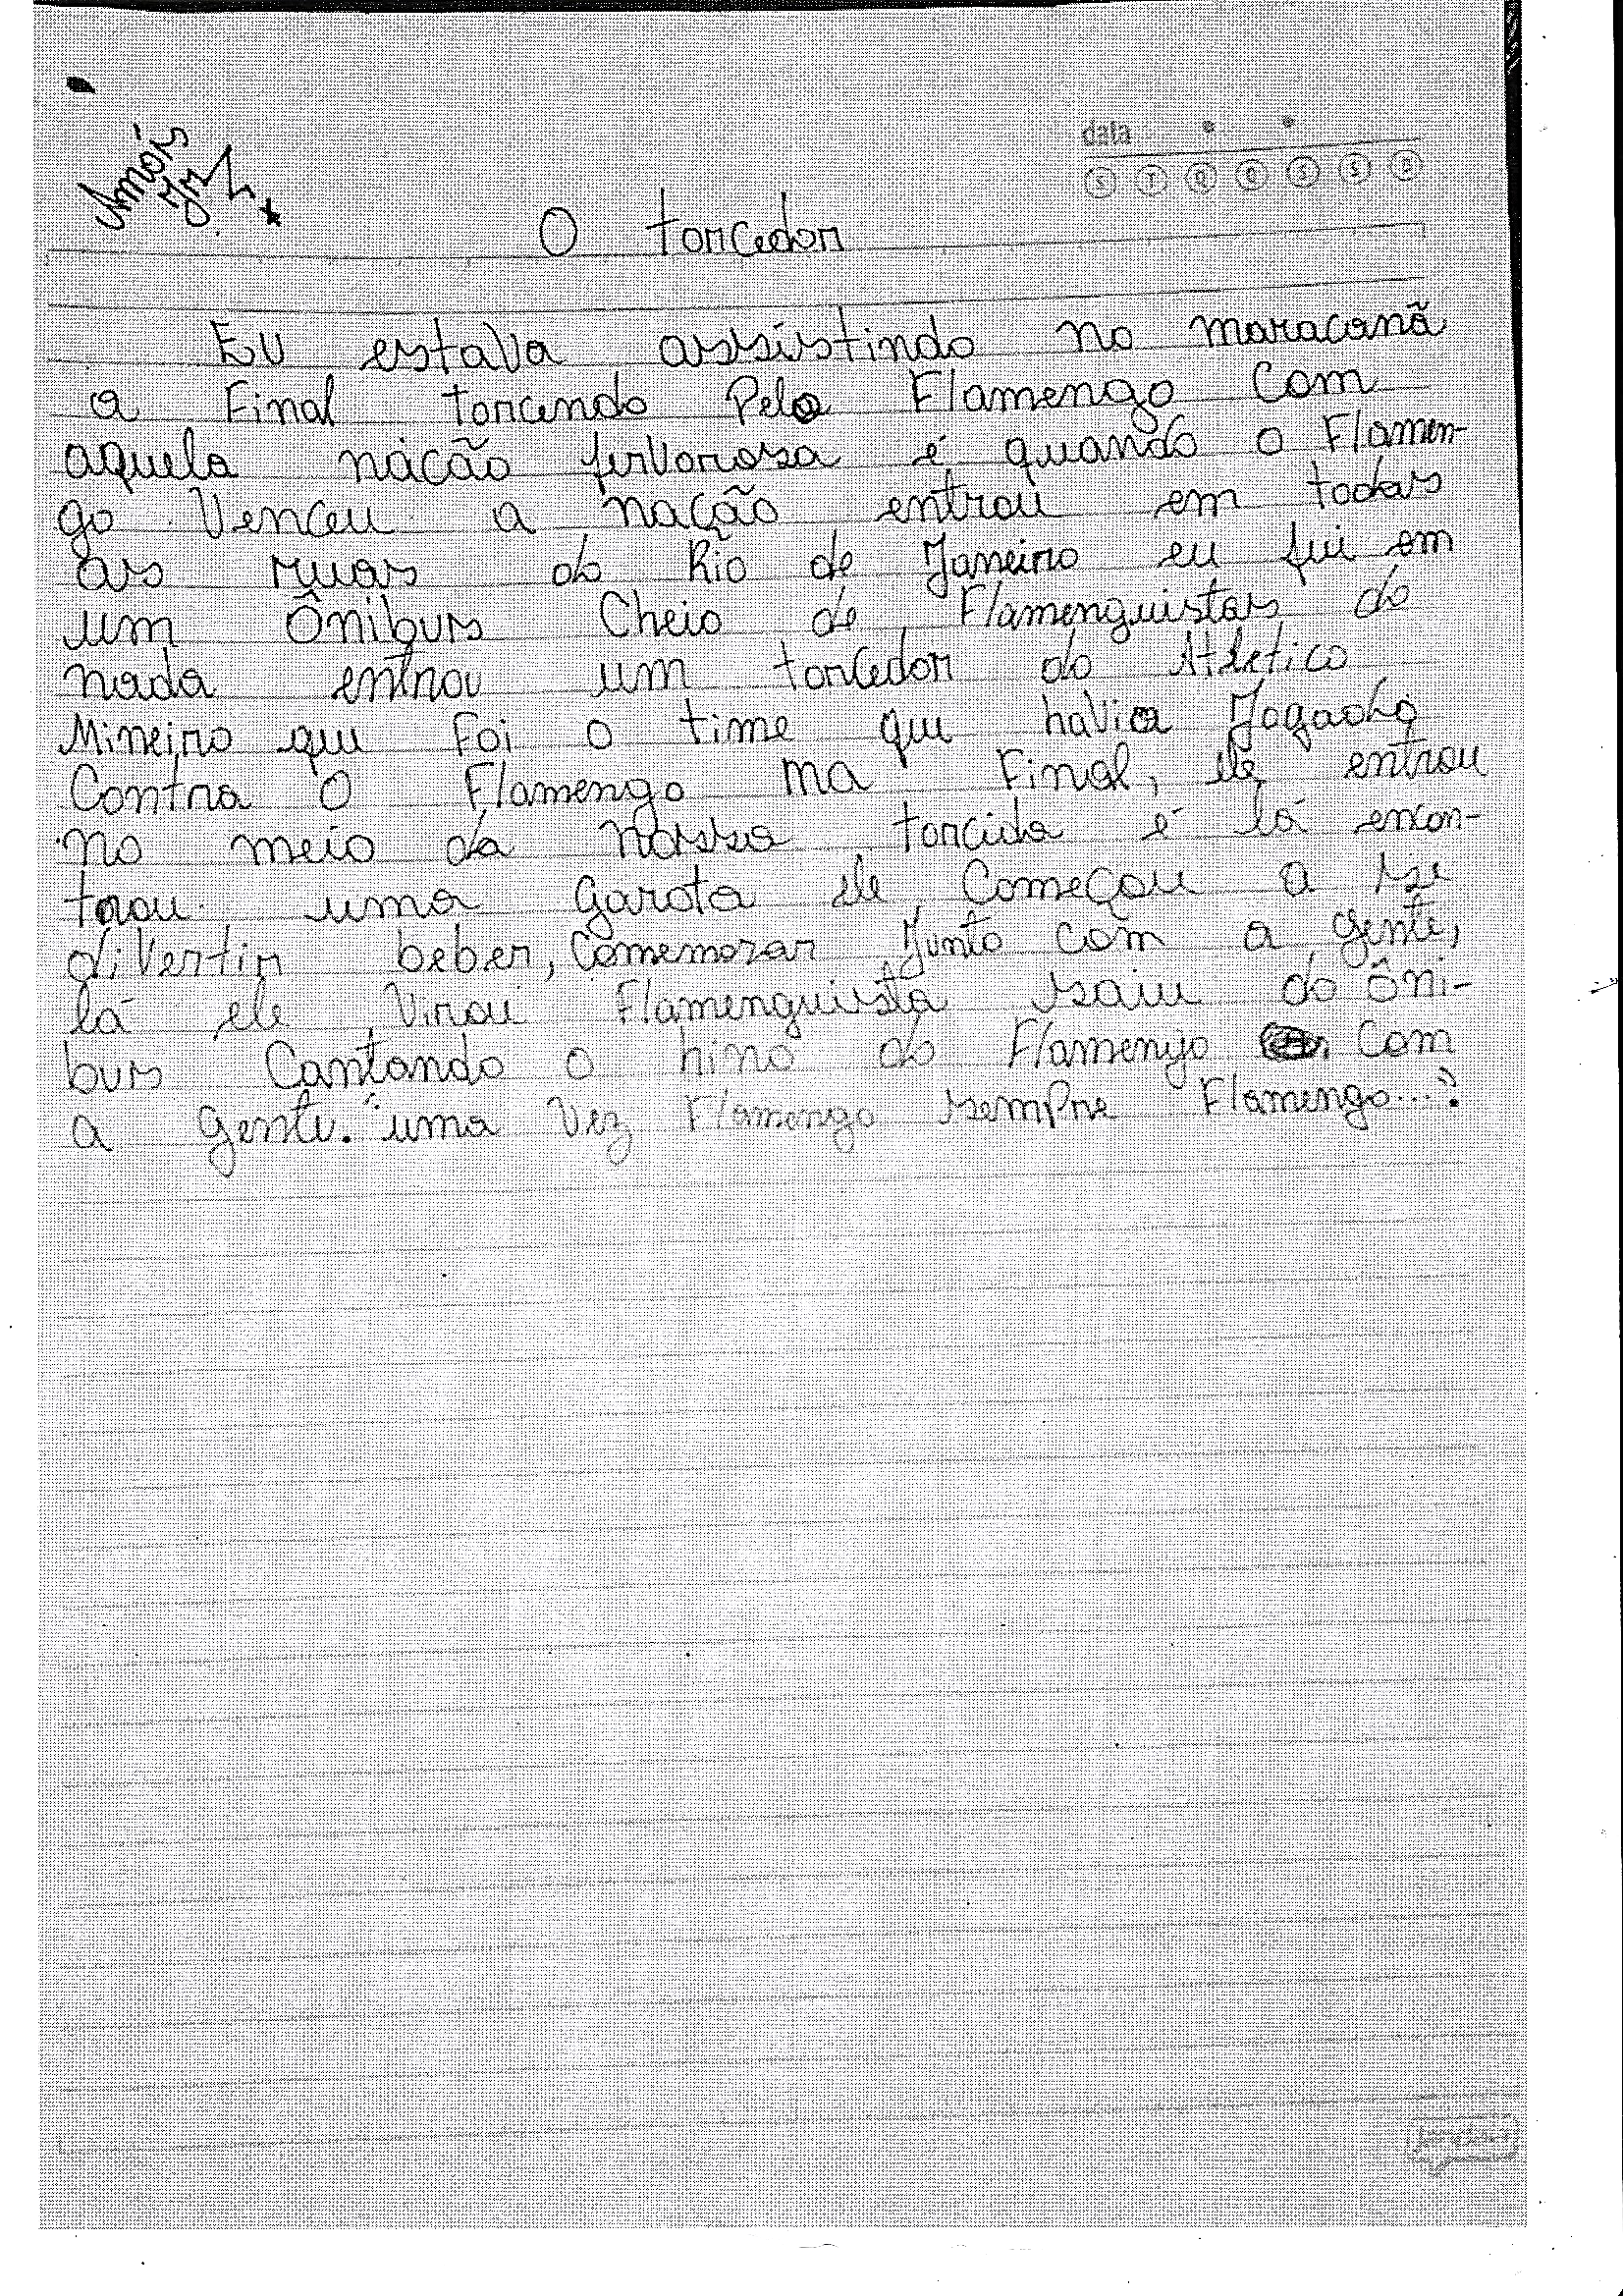 data
S T Q Q S S D
Amós
Jr
O torcedor
Eu estava assistindo no maracanã
a Final torcendo Pelo Flamengo Com
aquela nação fervorosa é quando o Flamen-
go Venceu a nação entrou em todas
as ruas do Rio de Janeiro eu fui em
um Ônibus Cheio de Flamenguistas do
nada entrou um torcedor do Atletico
Mineiro que Foi o time que havia Jogado
Contra O Flamengo na Final, ele entrou
no meio da nossa torcida é lá encon-
trou uma garota ele Começou a se
diVertir beber, Comemorar Junto com a gente,
lá ele Virou Flamenguista saiu do ôni-
bus Cantando o hino do Flamengo Com
a gente. "uma Vez Flamengo sempre Flamengo..."